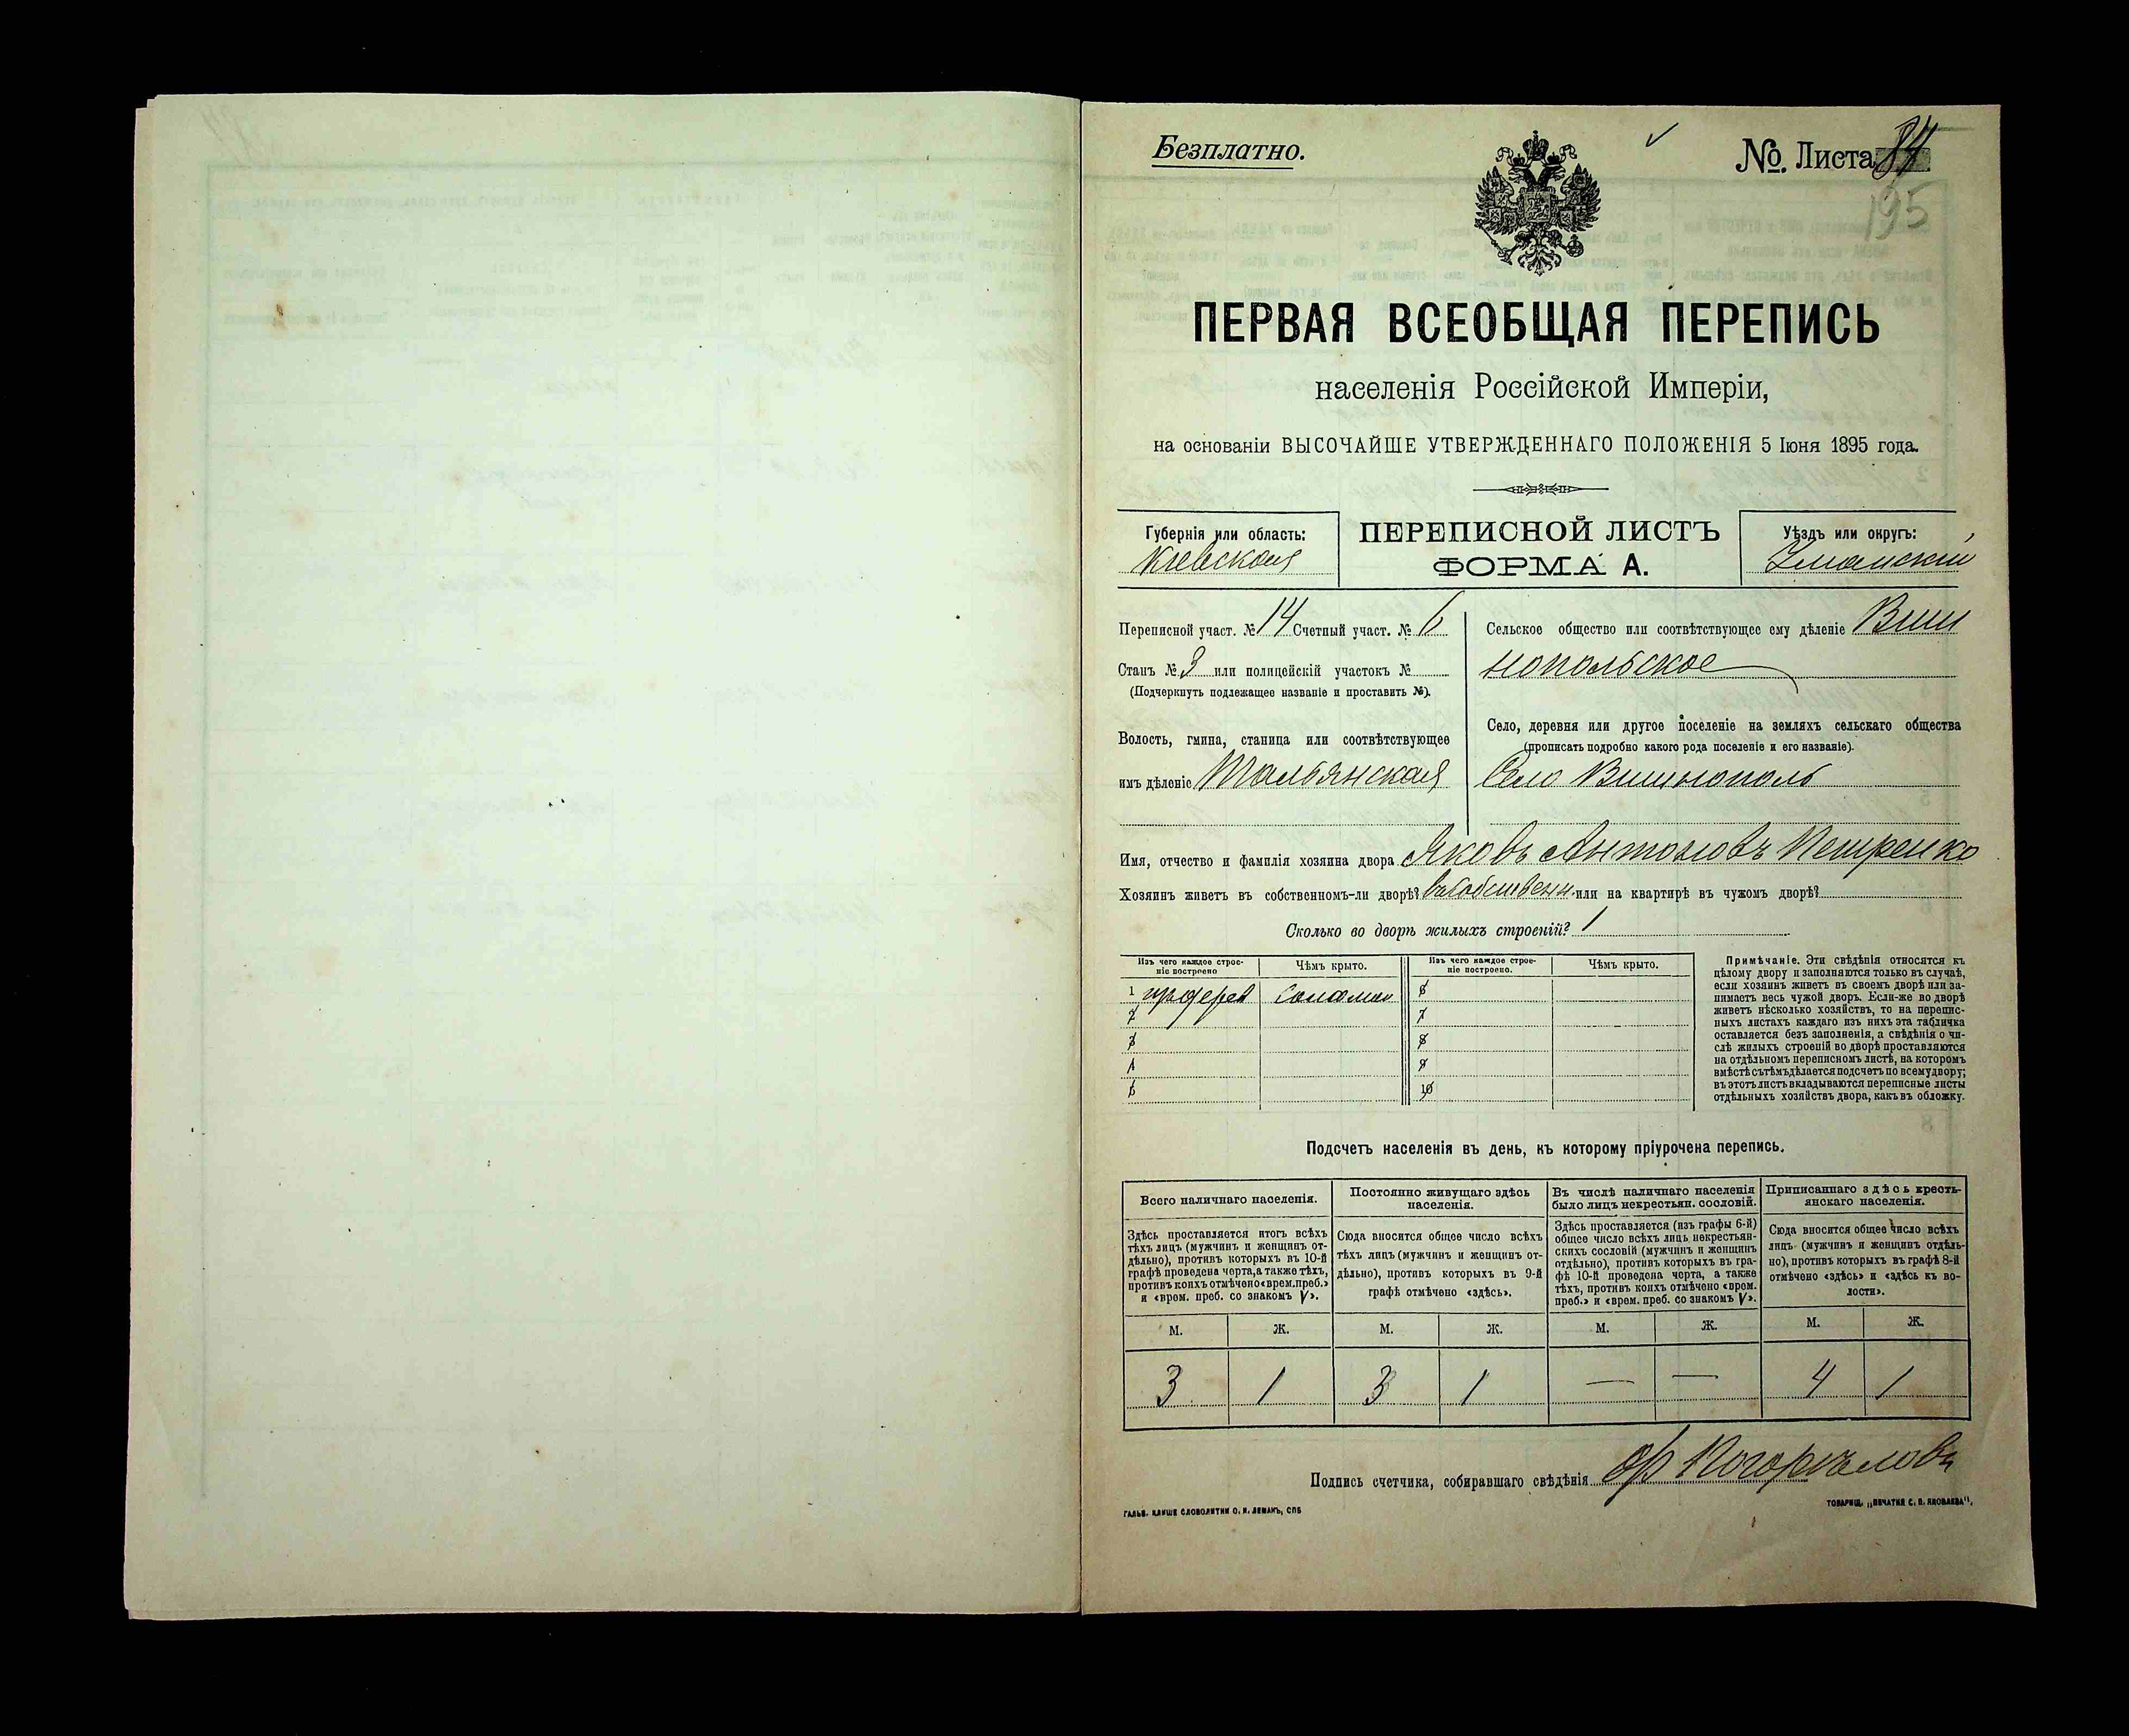 Безплатно.
№ Листа 84
195
ПЕРВАЯ ВСЕОБЩАЯ ПЕРЕПИСЬ
населенія Россійской Имперіи,
на основаніи ВЫСОЧАЙШЕ УТВЕРЖДЕННАГО ПОЛОЖЕНІЯ 5 Іюня 1895 года.
Губернія или область:
Кіевская
ПЕРЕПИСНОЙ ЛИСТЪ
ФОРМА А.
Уѣздъ или округъ:
Уманскій
Переписной участ. № 14 Счетный участ. № 6
Станъ № 3 или полицейскій участокъ №
(Подчеркнуть подлежащее названіе и проставить №).
Волость, гмина, станица или соотвѣтствующее
имъ дѣленіе Тальянская
Сельское общество или соотвѣтствующее ему дѣленіе Виш
нопольское
Село, деревня или другое поселеніе на земляхъ сельскаго общества
(прописать подробно какого рода поселеніе и его названіе).
Село Вишнополь
Имя, отчество и фамилія хозяина двора Яковъ Антоновъ Петренко
Хозяинъ живетъ въ собственномъ-ли дворѣ? въ собственн. или на квартирѣ въ чужомъ дворѣ?
Сколько во дворѣ жилыхъ строеній? 1
Изъ чего каждое строеніе построено
Чѣмъ крыто.
Изъ чего каждое строеніе построено.
Чѣмъ крыто.
1 Соломой 6
2 7
3 8
4 9
5 10
Примѣчаніе. Эти свѣдѣнія относятся къ
цѣлому двору и заполняются только въ случаѣ,
если хозяинъ живетъ въ своемъ дворѣ или за-
нимаетъ весь чужой дворъ. Если-же во дворѣ
живетъ нѣсколько хозяйствъ, то на перепис-
ныхъ листахъ каждаго изъ нихъ эта табличка
оставляется безъ заполненія, а свѣдѣнія о чи-
слѣ жилыхъ строеній во дворѣ проставляются
на отдѣльномъ переписномъ листѣ, на которомъ
вмѣстѣ съ тѣмъ дѣлается подсчетъ по всему двору;
въ этотъ листъ вкладываются переписные листы
отдѣльныхъ хозяйствъ двора, какъ въ обложку.
Подсчетъ населенія въ день, къ которому пріурочена перепись.
Всего наличнаго населенія.
Здѣсь проставляется итогъ всѣхъ
тѣхъ лицъ (мужчинъ и женщинъ от-
дѣльно), противъ которыхъ въ 10-й
графѣ проведена черта, а также тѣхъ,
противъ коихъ отмѣчено «врем. преб.»
и «врем. преб. со знакомъ V».
Постоянно живущаго здѣсь
населенія.
Сюда вносится общее число всѣхъ
тѣхъ лицъ (мужчинъ и женщинъ от-
дѣльно), противъ которыхъ въ 9-й
графѣ отмѣчено «здѣсь».
Въ числѣ наличнаго населенія
было лицъ некрестьян. сословій.
Здѣсь проставляется (изъ графы 6-й)
общее число всѣхъ лицъ некрестьян-
скихъ сословій (мужчинъ и женщинъ
отдѣльно), противъ которыхъ въ гра-
фѣ 10-й проведена черта, а также
тѣхъ, противъ коихъ отмѣчено «врем.
преб.» и «врем. преб. со знакомъ V».
Приписаннаго здѣсь кресть-
янскаго населенія.
Сюда вносится общее число всѣхъ
лицъ (мужчинъ и женщинъ отдѣль-
но), противъ которыхъ въ графѣ 8-й
отмѣчено «здѣсь» и «здѣсь къ во-
лости».
М. Ж. М. Ж. М. Ж. М. Ж.
3 1 3 1 — — 4 1
Подпись счетчика, собиравшаго свѣдѣнія Погорѣловъ
ГАЛЬВ. КЛИШЕ СЛОВОЛИТНИ О. И. ЛЕМАНЪ, СПБ
ТОВАРИЩ. „ПЕЧАТНЯ С. П. ЯКОВЛЕВА".